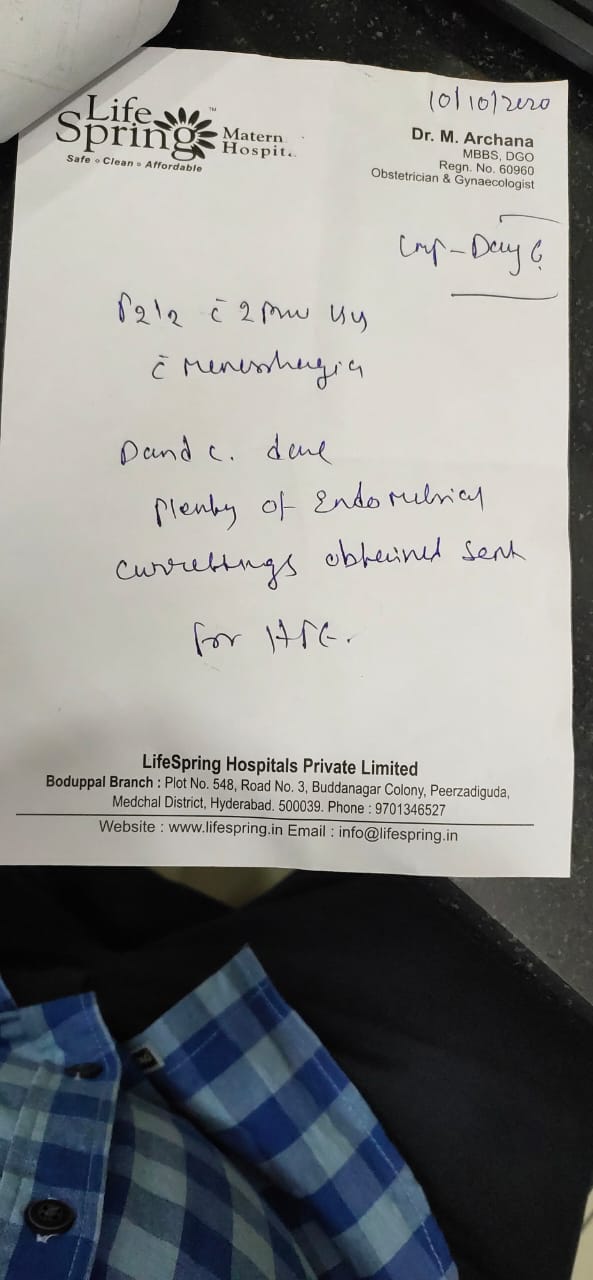 Life
Spring
TM
Matern
Hospit
Safe Clean Affordable
10/10/2020
Dr. M. Archana
MBBS, DGO
Regn. No. 60960
Obstetrician & Gynaecologist
Lmp - Day 6
P2L2 c̄ 2
c̄
D and c. done
Plenty of Endometrial
currettings obtained sent
for HPE.
LifeSpring Hospitals Private Limited
Boduppal Branch : Plot No. 548, Road No. 3, Buddanagar Colony, Peerzadiguda,
Medchal District, Hyderabad. 500039. Phone : 9701346527
Website : www.lifespring.in Email : info@lifespring.in